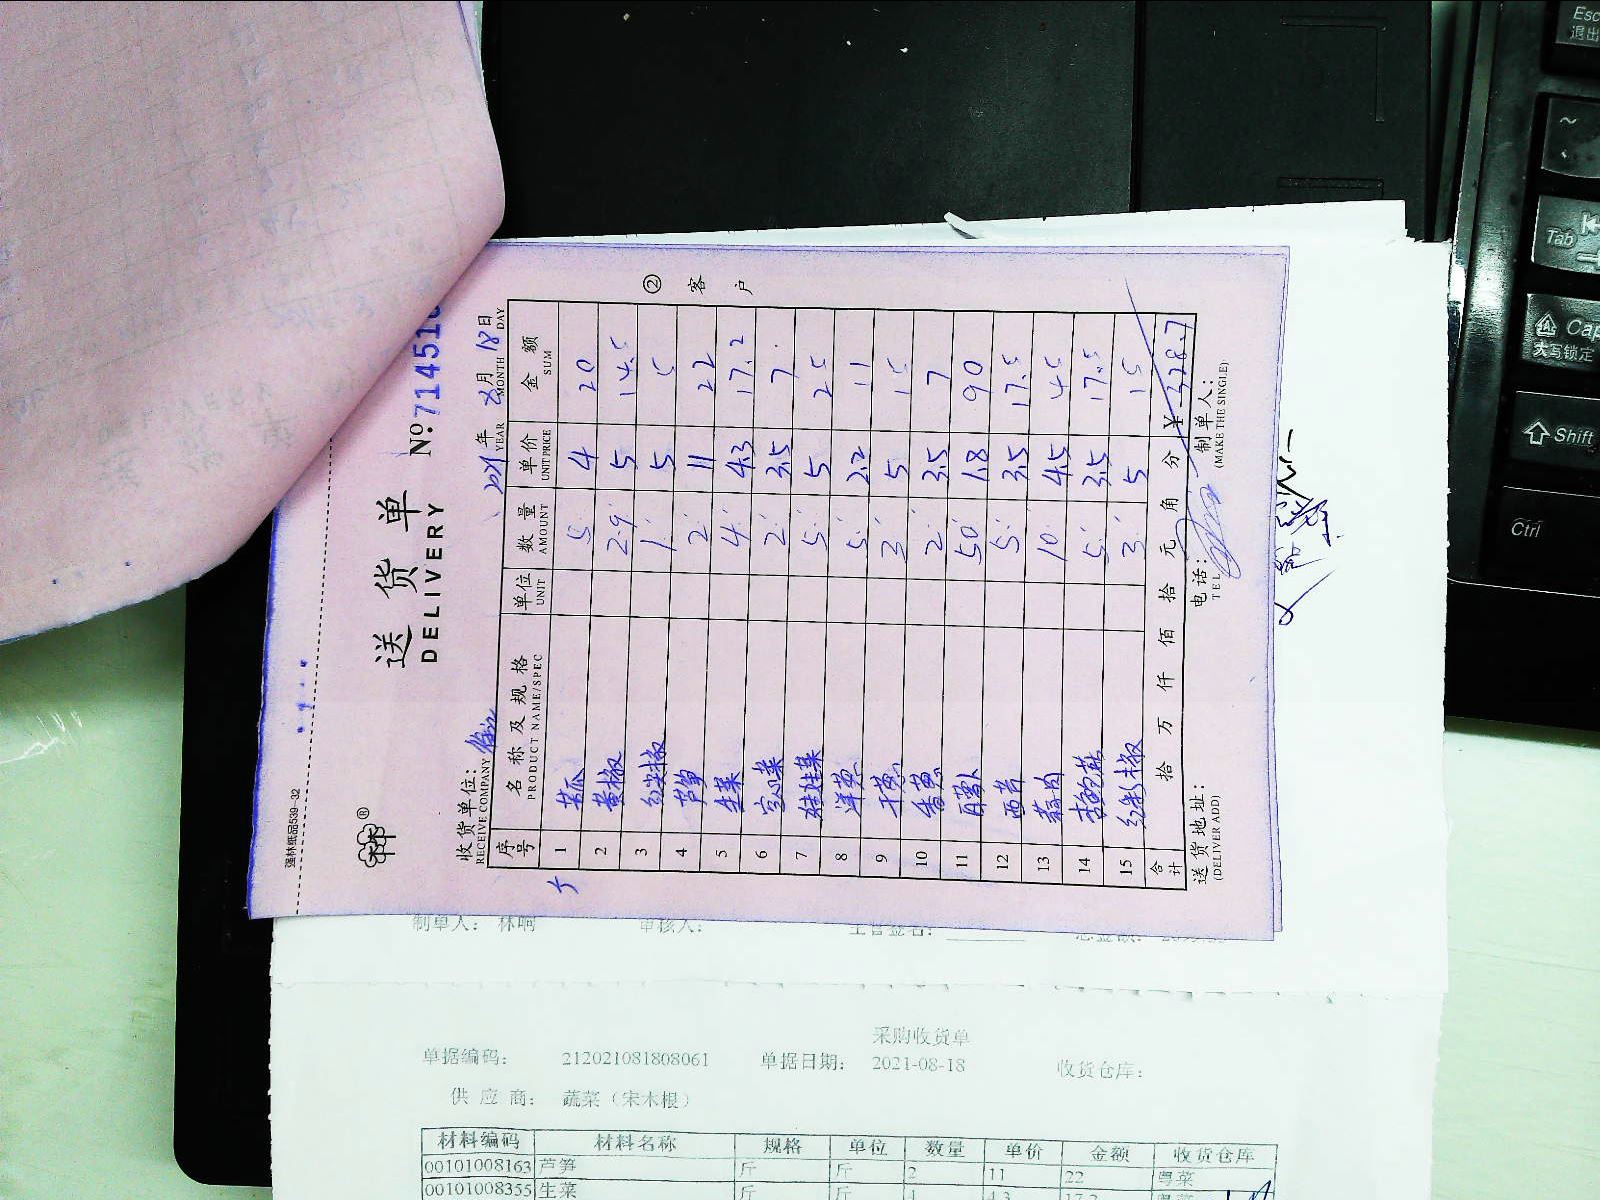 强林纸品539-32
送货单 №:714510
DELIVERY
收货单位: 2021年 8月 18日
RECEIVE COMPANY YEAR MONTH DAY
序号 名称及规格 单位 数量 单价 金额
PRODUCT NAME/SPEC UNIT AMOUNT UNIT PRICE SUM
1 苦瓜 5 4 20
2 黄椒 2.9 5 14.5
3 红尖椒 1 5 5
4 芦笋 2 11 22
5 生菜 4 4.3 17.2
6 空心菜 2 3.5 7
7 娃娃菜 5 5 25
8 洋葱 5 2.2 11
9 干葱 3 5 15
10 香葱 2 3.5 7
11 白萝卜 50 1.8 90
12 西芹 5 3.5 17.5
13 蒜肉 10 4.5 45
14 5 3.5 17.5
15 红彩椒 3 5 15
合计 拾 万 仟 佰 拾 元 角 分 ¥ 328.7
送货地址: 电话: 制单人:
(DELIVER ADD) TEL (MAKE THE SINGLE)
② 客户
制单人: 林响 审核人: 主管签名: 总金额:
采购收货单
单据编码: 212021081808061 单据日期: 2021-08-18 收货仓库:
供应商: 蔬菜(宋木根)
材料编码 材料名称 规格 单位 数量 单价 金额 收货仓库
00101008163 芦笋 斤 斤 2 11 22 粤菜
00101008355 生菜 斤 斤 4 4.3 17.2 粤菜
Esc
退出
~
Tab
Cap
大写锁定
Shift
Ctrl